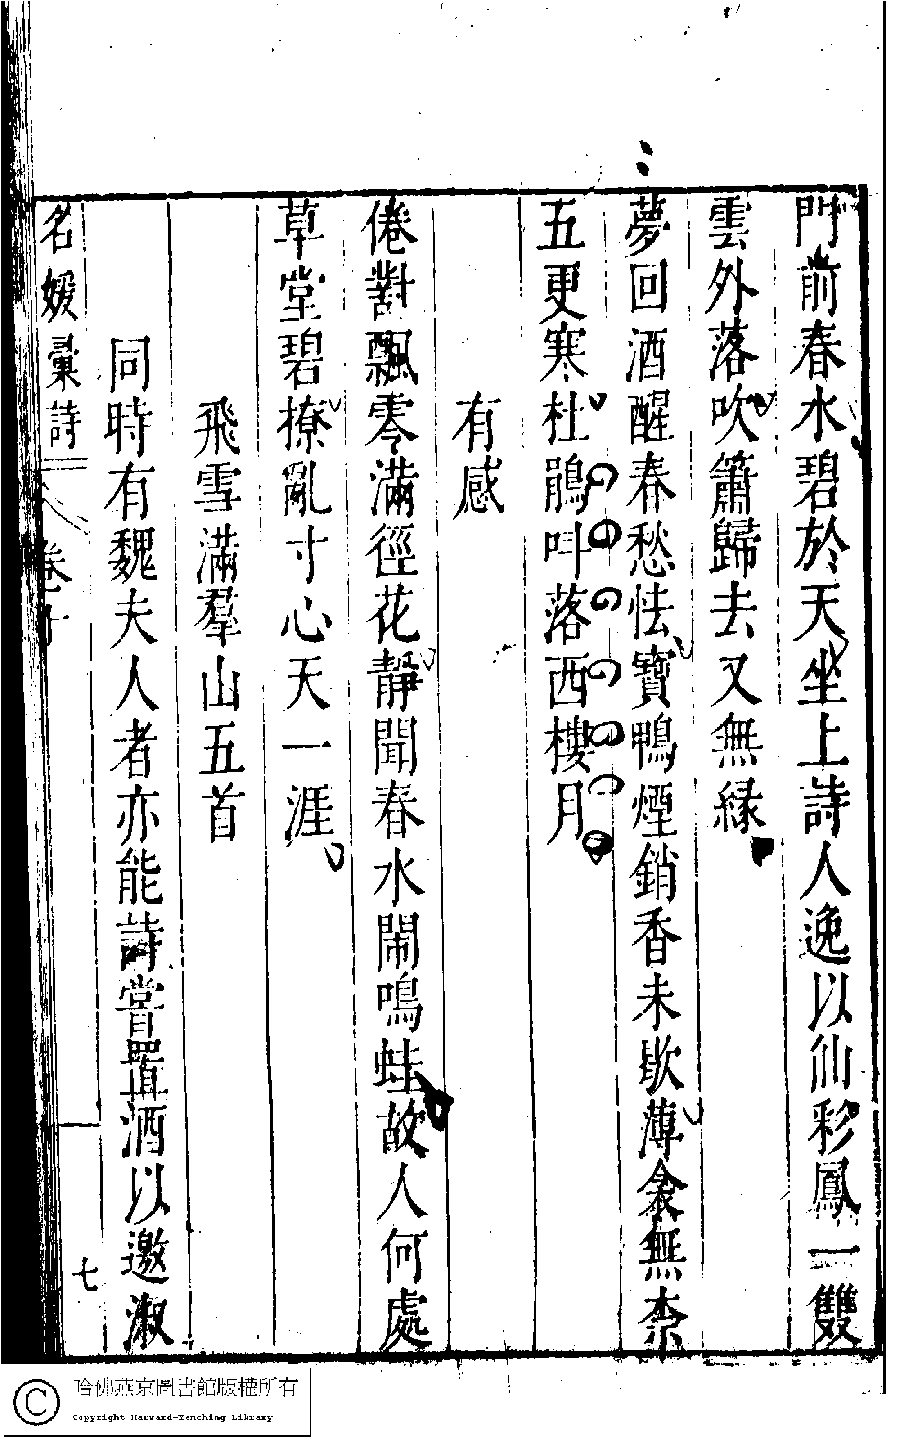 門前春水碧於天坐上詩人逸以仙彩鳳一雙
雲外落吹簫歸去又無緣
夢回酒醒春愁怯寶鴨煙銷香未歇薄衾無柰
五更寒杜鵑叫落西樓月
有感
倦對飄零滿徑花靜聞春水閙鳴蛙故人何處
草堂碧撩亂寸心天一涯
飛雪滿羣山五首
同時有魏夫人者亦能詩嘗置酒以邀淑
名媛彙詩
卷
七
哈佛燕京圖書館版權所有
Copyright Harvard-Yenching Library